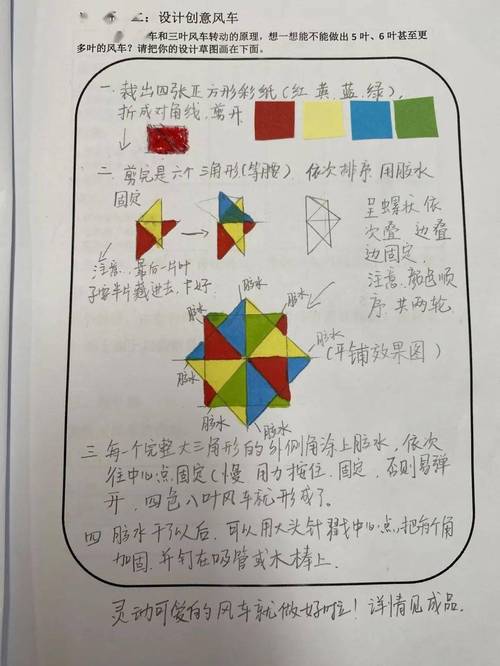 二：设计创意风车
车和三叶风车转动的原理，想一想能不能做出 5 叶、6 叶甚至更
多叶的风车？请把你的设计草图画在下面。
一 裁出四张正方形彩纸(红.黄.蓝.绿),
折成对角线,剪开
二 剪完是六个三角形(等腰) 依次排序 用胶水
固定
呈螺状 依
次叠 边叠
边固定.
注意.颜色顺
序.共两轮.
注意.最后一片叶
子要半片藏进去,卡好
胶水
胶水
胶水
胶水
(平铺效果图)
胶水
胶水
胶水
三 每个完整大三角形的外侧角涂上胶水,依次
往中心点固定(慢 用力按住.固定,否则易弹
开 四色八叶风车就形成了。
四 胶水干了以后.可以用大头针戳中心点,把每个角
加固.并钉在吸管或木棒上.
灵动可爱的风车就做好啦！详情见成品.